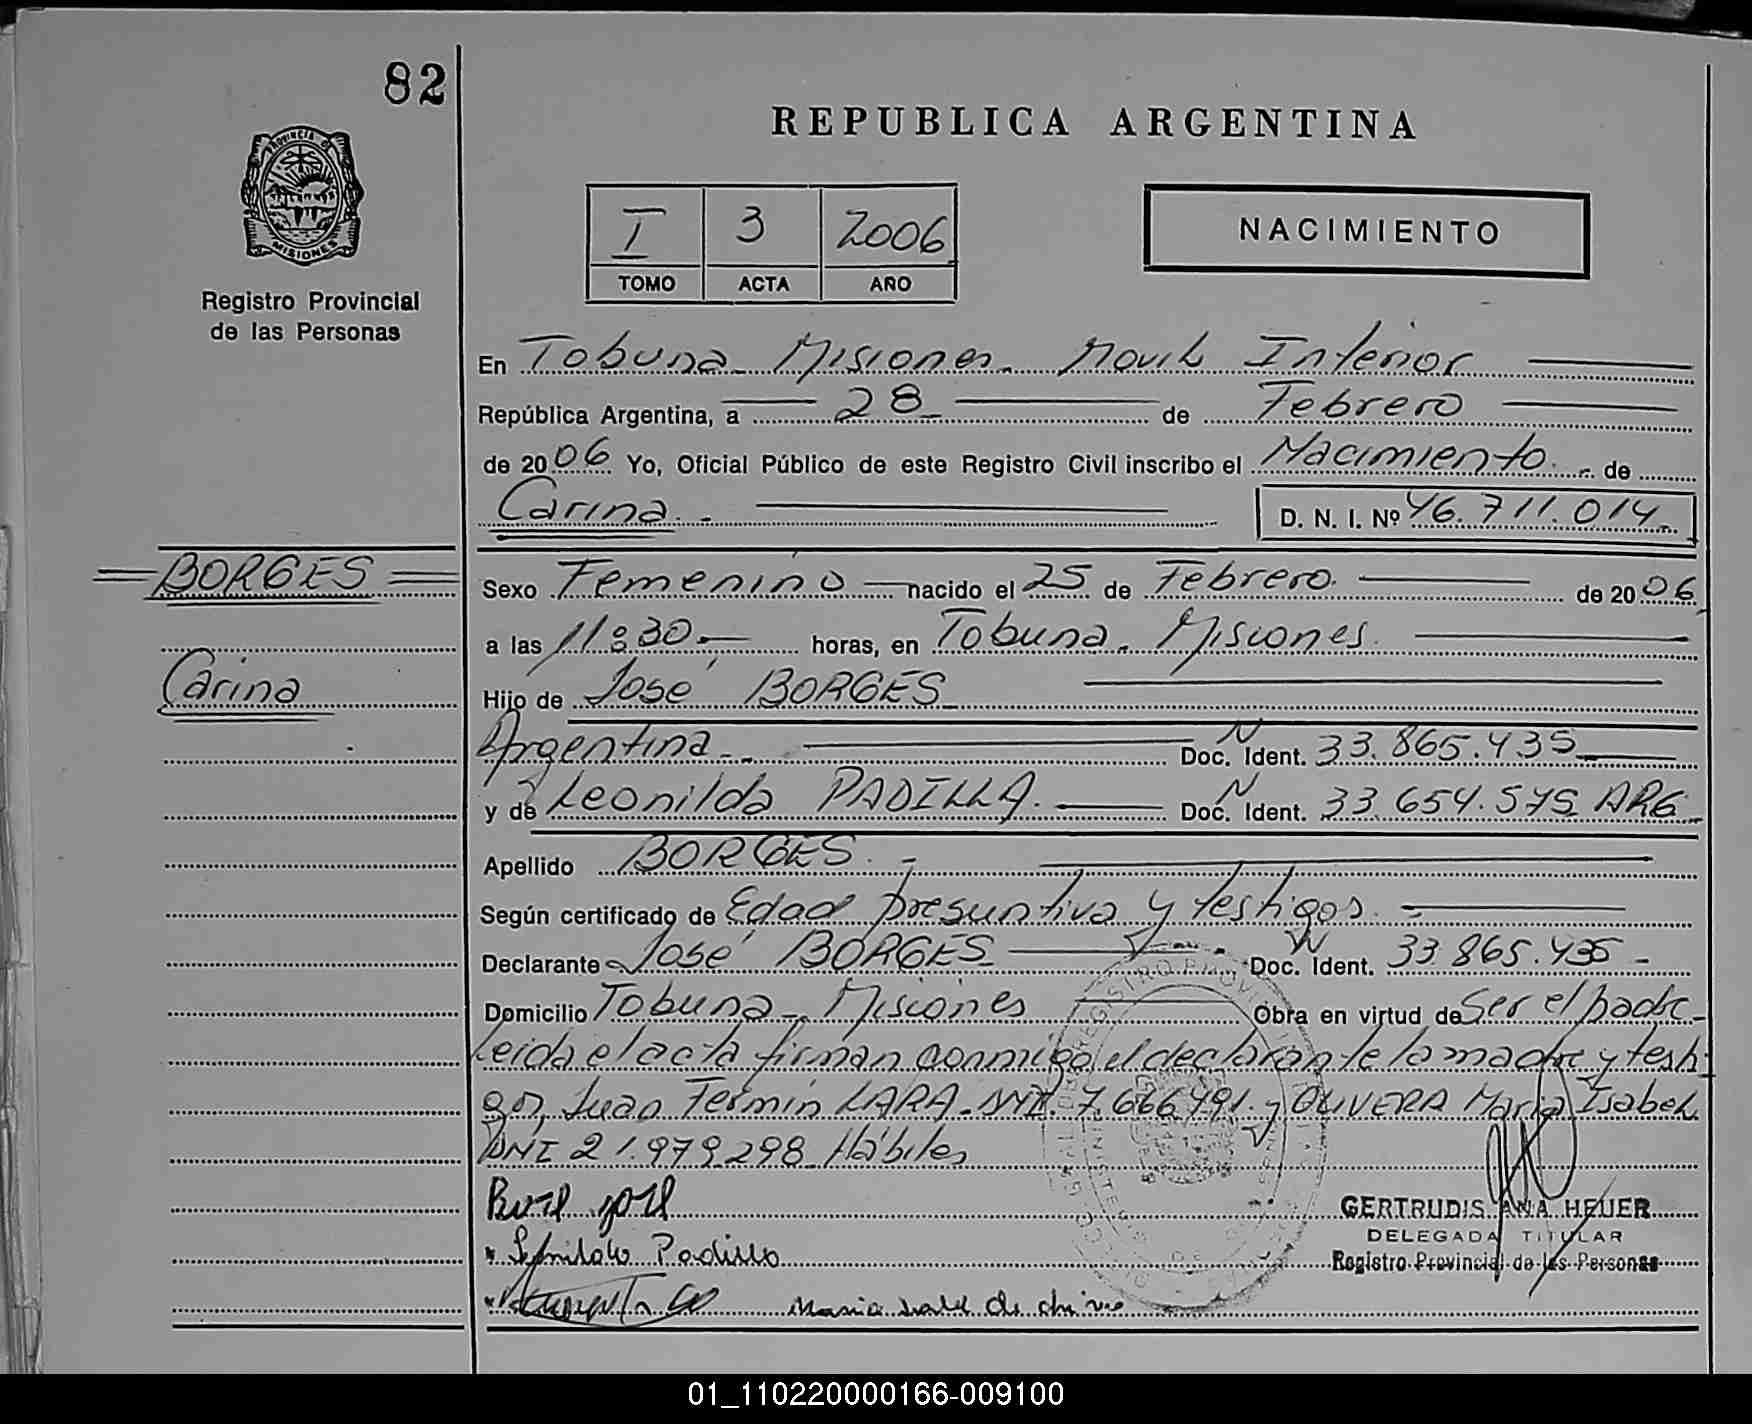 82
REPUBLICA ARGENTINA
PROVINCIA DE
MISIONES
Registro Provincial
de las Personas
I 3 2006
TOMO ACTA AÑO
NACIMIENTO
En Tobuna Misiones. Movil Interior
República Argentina, a 28 de Febrero
de 2006 Yo, Oficial Público de este Registro Civil inscribo el Nacimiento de
Carina. D. N. I. Nº 46.711.014
BORGES
Sexo Femenino nacido el 25 de Febrero. de 2006
a las 11:30 horas, en Tobuna. Misiones.
Carina
Hijo de José BORGES
Argentina Doc. N Ident. 33.865.435
y de Leonilda PADILLA. Doc. N Ident. 33.654.575 ARG
Apellido BORGES.
Según certificado de Edad presuntiva y testigos.
Declarante José BORGES Doc. N Ident. 33 865.435
Domicilio Tobuna Misiones Obra en virtud de Ser el padre
Leida el acta firman conmigo el declarante la madre y testi
gos, Juan Fermin LARA DNI. 7.666.491. y OLIVERA Maria Isabel
DNI 21.979.298 Hábiles
Padillo
Maria
GERTRUDIS ANA HEUER
DELEGADA TITULAR
Registro Provincial de las Personas
01_110220000166-009100